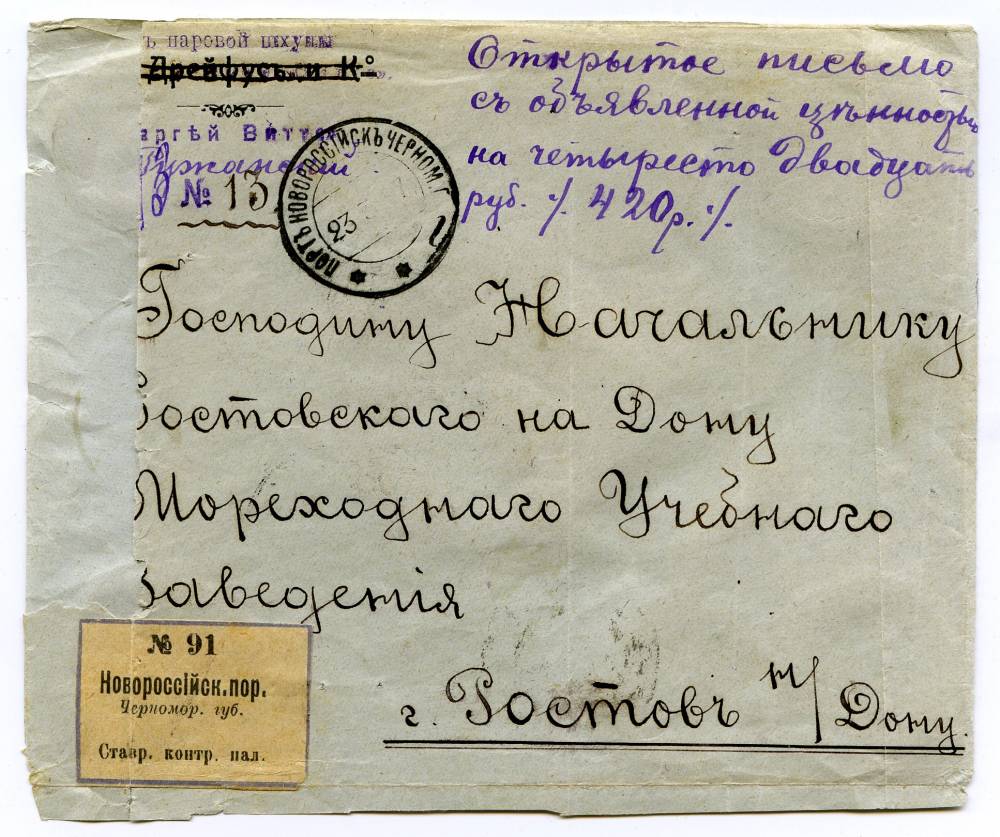 ъ паровой шхуны
Дрейфусъ и К°
ергѣй Витте
№ 13
Открытое письмо
съ объявленной цѣнностью
на четыресто двадцать
руб. ·/. 420 р. ·/.
ПОРТЪ НОВОРОССІЙСКЪ ЧЕРНОМ. Г.
23
Господину Начальнику
Ростовскаго на Дону
Мореходнаго Учебнаго
Заведенія
г. Ростовъ н/Дону.
№ 91
Новороссійск. пор.
Черномор. губ.
Ставр. контр. пал.